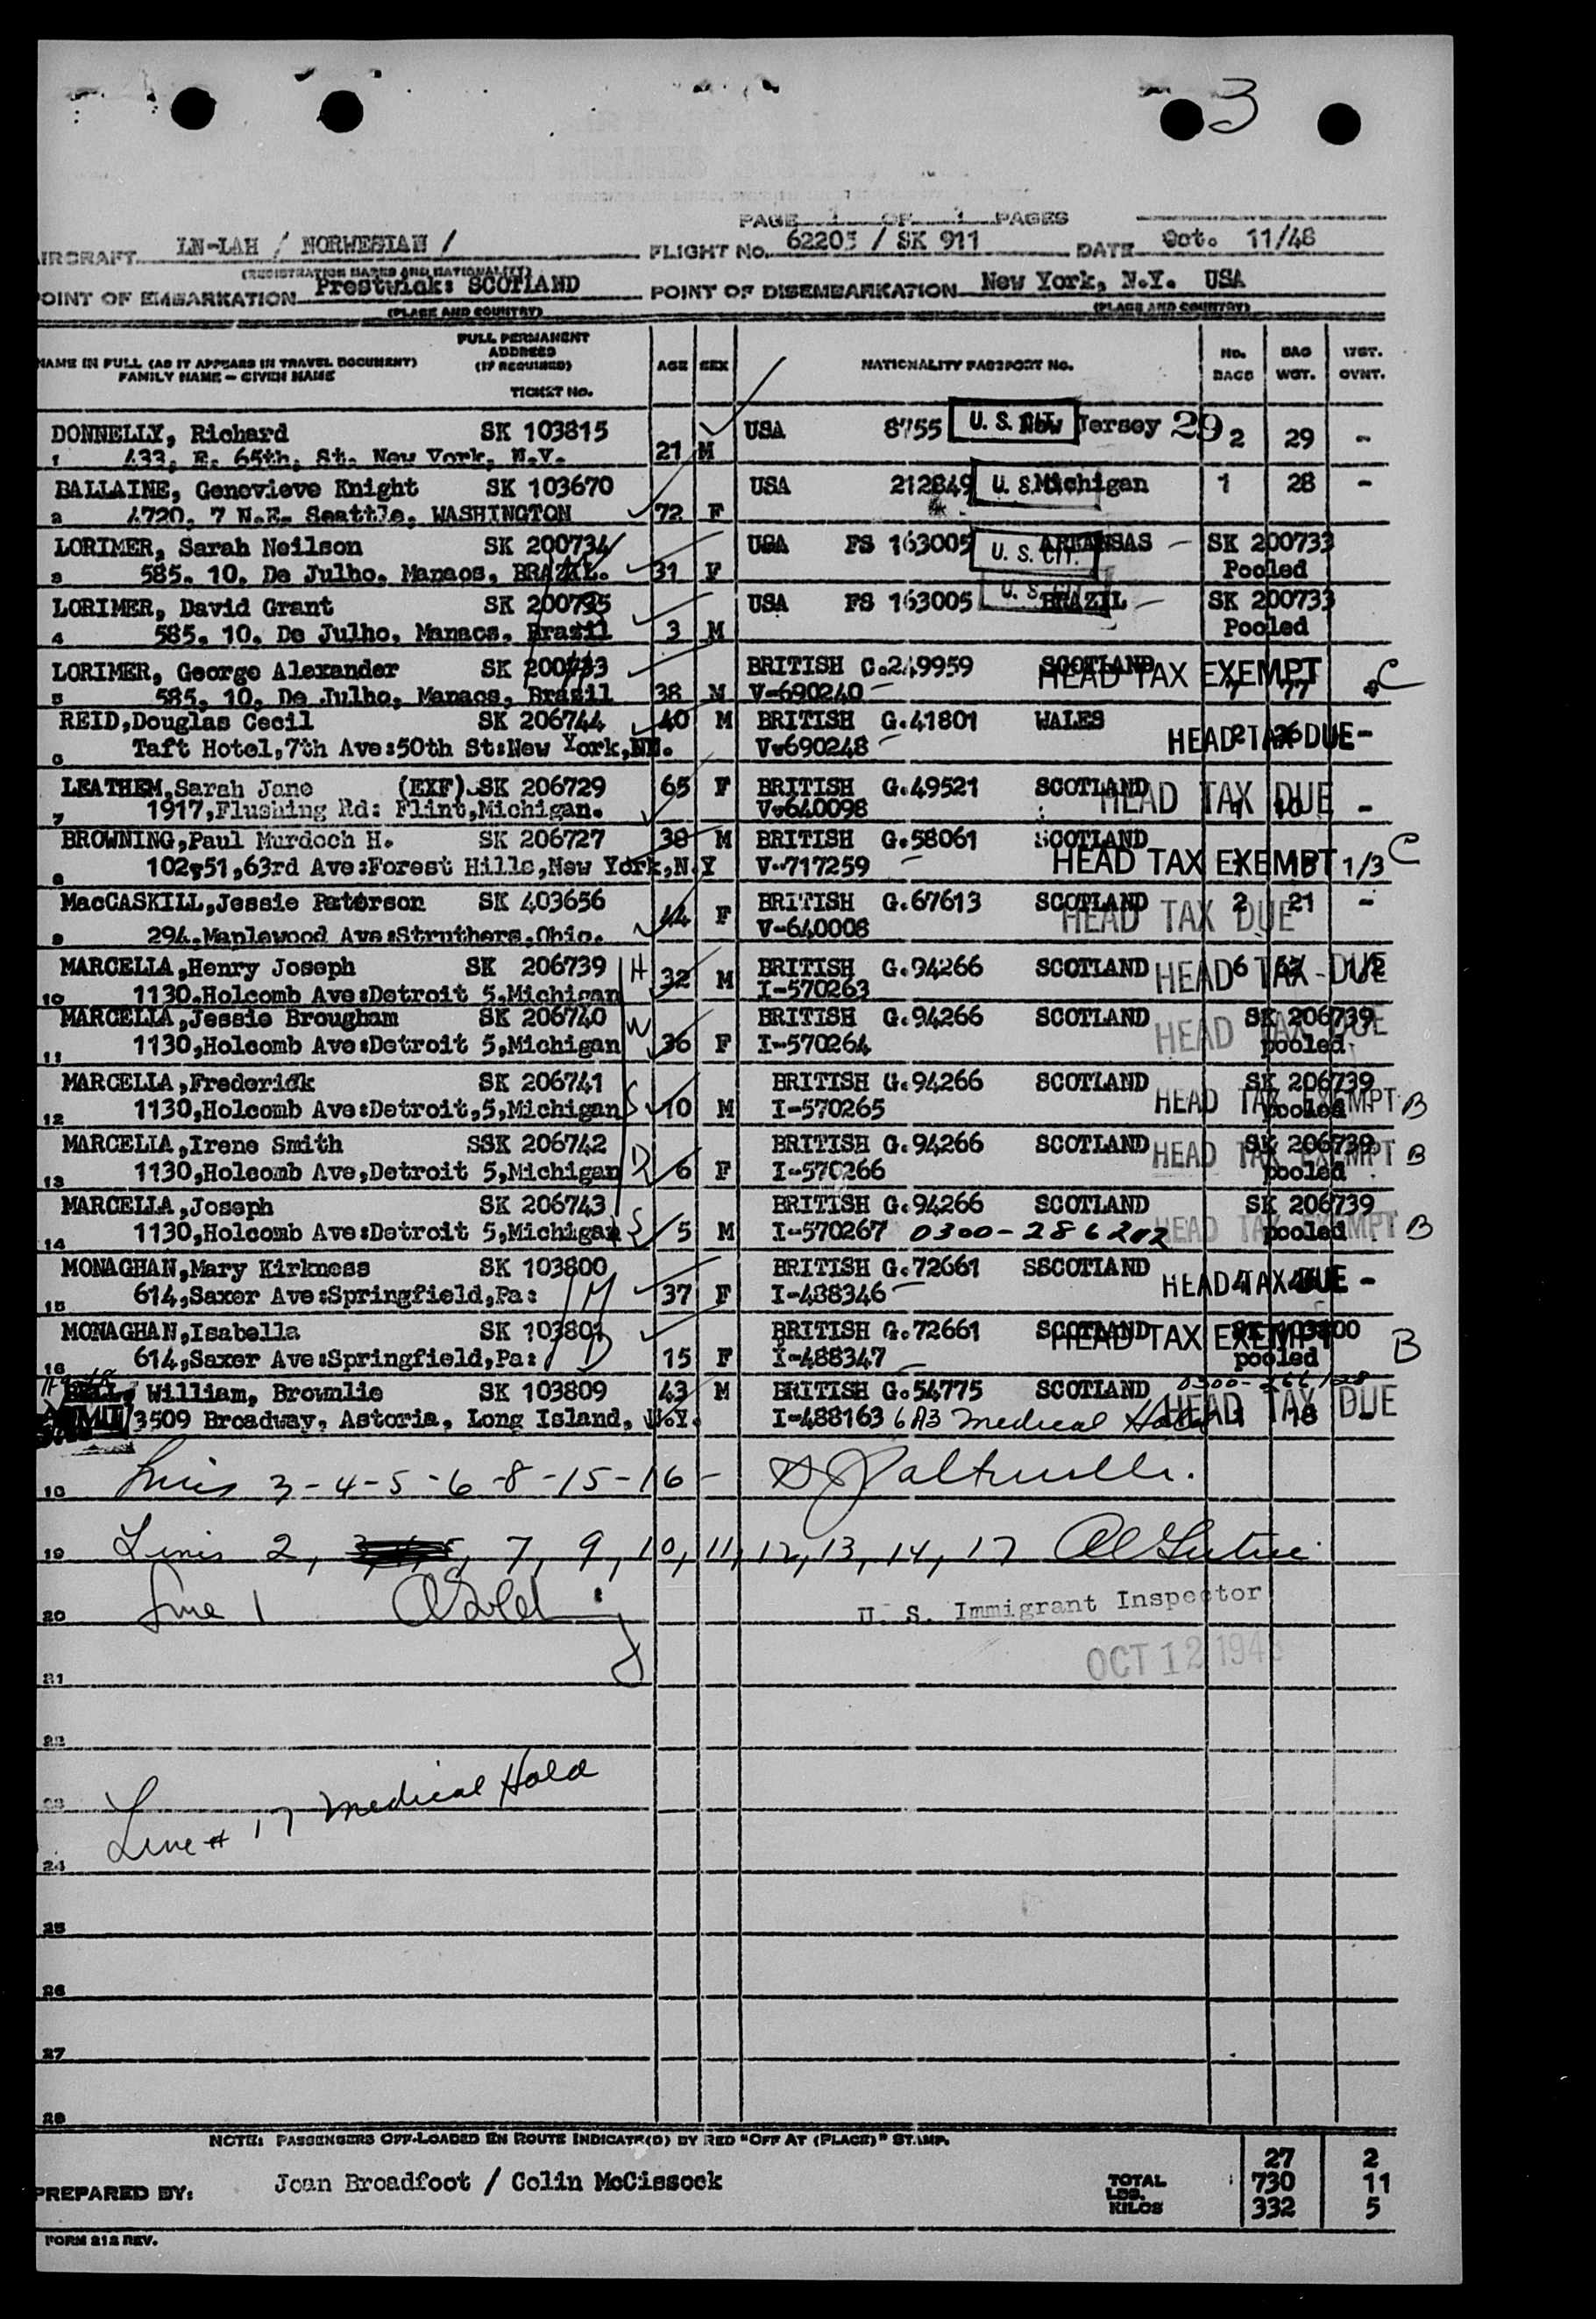 3
PAGE 1 OF 1 PAGES
AIRCRAFT LN-LAH / NORWEGIAN / FLIGHT No. 62205 / SK 911 DATE Oct. 11/48
(REGISTRATION MARKS AND NATIONALITY)
POINT OF EMBARKATION Prestwick: SCOTLAND POINT OF DISEMBARKATION New York, N.Y. USA
(PLACE AND COUNTRY) (PLACE AND COUNTRY)
NAME IN FULL (AS IT APPEARS IN TRAVEL DOCUMENT) FAMILY NAME - GIVEN NAME FULL PERMANENT ADDRESS (IF REQUIRED) TICKET No. AGE SEX NATIONALITY PASSPORT No. No. BAGS BAG WGT. WGT. OVWT.
DONNELLY, Richard SK 103815 USA 8755 U. S. CIT. New Jersey 29 2 29 -
1 433, E. 65th, St. New York, N.Y. 21 M
BALLAINE, Genevieve Knight SK 103670 USA 212849 U. S. Michigan 1 28 -
2 4720, 7 N.E. Seattle, WASHINGTON 72 F
LORIMER, Sarah Neilson SK 200734 USA FS 163005 U. S. CIT. ARKANSAS - SK 200733
3 585, 10, De Julho, Manaos, BRAZIL. 31 F Pooled
LORIMER, David Grant SK 200735 USA FS 163005 U. S. CIT BRAZIL - SK 200733
4 585, 10, De Julho, Manaos, Brazil 3 M Pooled
LORIMER, George Alexander SK 200733 BRITISH C.249959 SCOTLAND HEAD TAX EXEMPT C
5 585, 10, De Julho, Manaos, Brasil 38 M V-690240 7 77 4
REID,Douglas Cecil SK 206744 40 M BRITISH G.41801 WALES
6 Taft Hotel,7th Ave:50th St:New York,NY. V-690248 HEAD TAX DUE 2 26 -
LEATHEM,Sarah Jane (EXF) SK 206729 65 F BRITISH G.49521 SCOTLAND HEAD TAX DUE
7 1917,Flushing Rd: Flint,Michigan. V-640098 -
BROWNING,Paul Murdoch H. SK 206727 38 M BRITISH G.58061 SCOTLAND
8 102-51,63rd Ave:Forest Hills,New York,N.Y V-717259 HEAD TAX EXEMPT 1/3 C
MacCASKILL,Jessie Paterson SK 403656 44 F BRITISH G.67613 SCOTLAND HEAD TAX DUE 2 21 -
9 294,Maplewood Ave:Struthers,Ohio. V-640008
MARCELLA,Henry Joseph SK 206739 H 32 M BRITISH G.94266 SCOTLAND HEAD TAX DUE 6
10 1130,Holcomb Ave:Detroit 5,Michigan I-570263
MARCELLA,Jessie Brougham SK 206740 W BRITISH G.94266 SCOTLAND SK 206739
11 1130,Holcomb Ave:Detroit 5,Michigan 36 F I-570264 HEAD TAX DUE pooled
MARCELLA,Frederick SK 206741 BRITISH G.94266 SCOTLAND SK 206739
12 1130,Holcomb Ave:Detroit,5,Michigan S 10 M I-570265 HEAD TAX EXEMPT pooled B
MARCELLA,Irene Smith SSK 206742 BRITISH G.94266 SCOTLAND SK 206739
13 1130,Holcomb Ave,Detroit 5,Michigan D 6 F I-570266 HEAD TAX EXEMPT pooled B
MARCELLA,Joseph SK 206743 BRITISH G.94266 SCOTLAND SK 206739
14 1130,Holcomb Ave:Detroit 5,Michigan S 5 M I-570267 0300-286202 HEAD TAX EXEMPT pooled B
MONAGHAN,Mary Kirkness SK 103800 BRITISH G.72661 SSCOTLAND
15 614,Saxer Ave:Springfield,Pa: M 37 F I-488346 HEAD TAX DUE -
MONAGHAN,Isabella SK 103801 BRITISH G.72661 SCOTLAND HEAD TAX EXEMPT SK 103800 B
16 614,Saxer Ave:Springfield,Pa: D 15 F I-488347 pooled
BELL, William, Brownlie SK 103809 43 M BRITISH G.54775 SCOTLAND HEAD TAX DUE
3509 Broadway, Astoria, Long Island, N.Y. I-488163 6A3 Medical Hold 1 18 -
18 Lines 3-4-5-6-8-15-16-
19 Lines 2, 7, 9, 10, 11, 12, 13, 14, 17
20 Line 1 U. S. Immigrant Inspector
OCT 12 194
21
22
23
Line # 17 Medical Hold
24
25
26
27
28
NOTE: PASSENGERS OFF-LOADED EN ROUTE INDICATE(D) BY RED "OFF AT (PLACE)" STAMP.
27 2
PREPARED BY: Joan Broadfoot / Colin McCissock TOTAL LBS. 730 11
KILOS 332 5
FORM 212 REV.